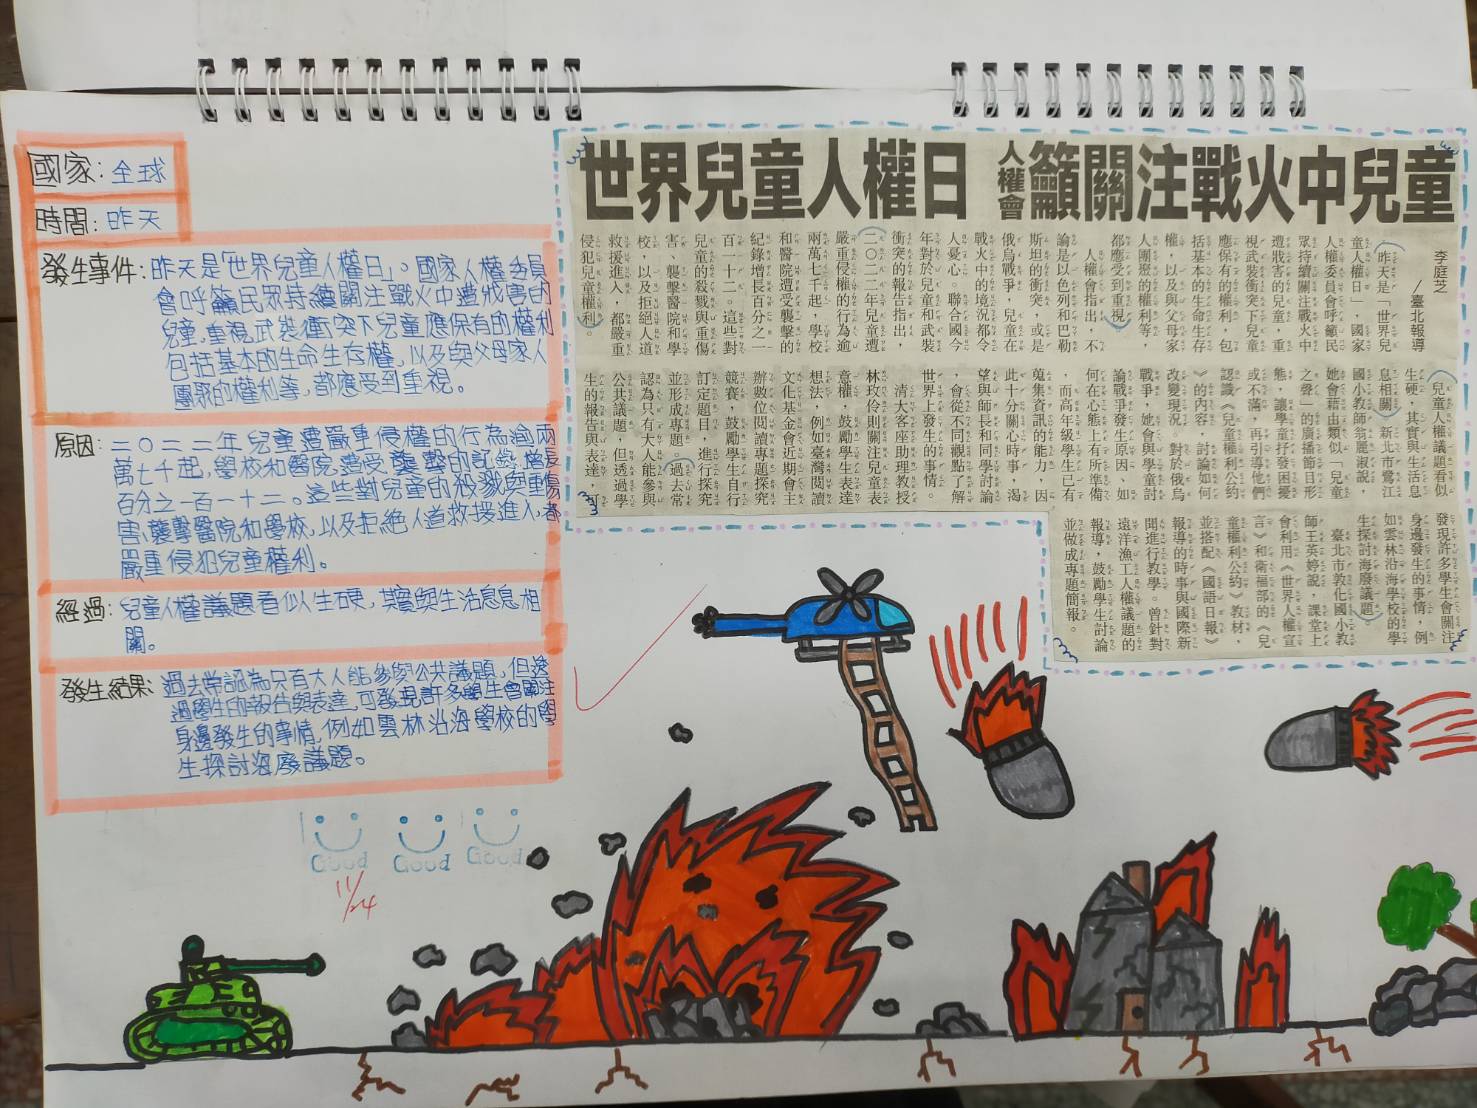 國家：全球
時間：昨天
發生事件：昨天是「世界兒童人權日」。國家人權委員
會呼籲民眾持續關注戰火中遭戕害的
兒童，重視武裝衝突下兒童應保有的權利
包括基本的生命生存權，以及與父母家人
團聚的權利等，都應受到重視。
原因：二〇二二年兒童遭嚴重侵權的行為逾兩
萬七千起，學校和醫院遭受襲擊的記錄增長
百分之一百一十二。這些對兒童的殺戮與重傷
害、襲擊醫院和學校，以及拒絕人道救援進入，都
嚴重侵犯兒童權利。
經過：兒童人權議題看似生硬，其實與生活息息相
關。
發生結果：過去常認為只有大人能參與公共議題，但透
過學生的報告與表達，可發現許多學生會關注
身邊發生的事情，例如雲林沿海學校的學
生探討海廢議題。
Good
Good
Good
11/24
世界兒童人權日
人權會
籲關注戰火中兒童
李庭芝
／臺北報導
昨天是「世界兒
童人權日」，國家
人權委員會呼籲民
眾持續關注戰火中
遭戕害的兒童，重
視武裝衝突下兒童
應保有的權利，包
括基本的生命生存
權，以及與父母家
人團聚的權利等，
都應受到重視。
人權會指出，不
論是以色列和巴勒
斯坦的衝突，或是
俄烏戰爭，兒童在
戰火中的境況都令
人憂心。聯合國今
年對於兒童和武裝
衝突的報告指出，
二〇二二年兒童遭
嚴重侵權的行為逾
兩萬七千起，學校
和醫院遭受襲擊的
紀錄增長百分之一
百一十二。這些對
兒童的殺戮與重傷
害、襲擊醫院和學
校，以及拒絕人道
救援進入，都嚴重
侵犯兒童權利。
兒童人權議題看似
生硬，其實與生活息
息相關。新北市鷺江
國小教師翁麗淑說，
她會藉由類似「兒童
之聲」的廣播節目形
態，讓學童抒發困擾
或不滿，再引導他們
認識《兒童權利公約
》的內容，討論如何
改變現況。對於俄烏
戰爭，她會與學童討
論戰爭發生原因、如
何在心態上有所準備
，而高年級學生已有
蒐集資訊的能力，因
此十分關心時事，渴
望與師長和同學討論
，會從不同觀點了解
世界上發生的事情。
清大客座助理教授
林玫伶則關注兒童表
意權，鼓勵學生表達
想法，例如臺灣閱讀
文化基金會近期會主
辦數位閱讀專題探究
競賽，鼓勵學生自行
訂定題目，進行探究
並形成專題。「過去常
認為只有大人能參與
公共議題，但透過學
生的報告與表達，可
發現許多學生會關注
身邊發生的事情，例
如雲林沿海學校的學
生探討海廢議題。
臺北市敦化國小教
師王英婷說，課堂上
會利用《世界人權宣
言》和衛福部的《兒
童權利公約》教材，
並搭配《國語日報》
報導的時事與國際新
聞進行教學。曾針對
遠洋漁工人權議題的
報導，鼓勵學生討論
並做成專題簡報。